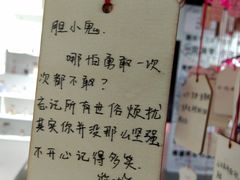 胆小鬼.
哪怕勇敢一次
次都不敢?
忘记所有世俗烦扰
其实你并没那么坚强
不开心记得多笑.